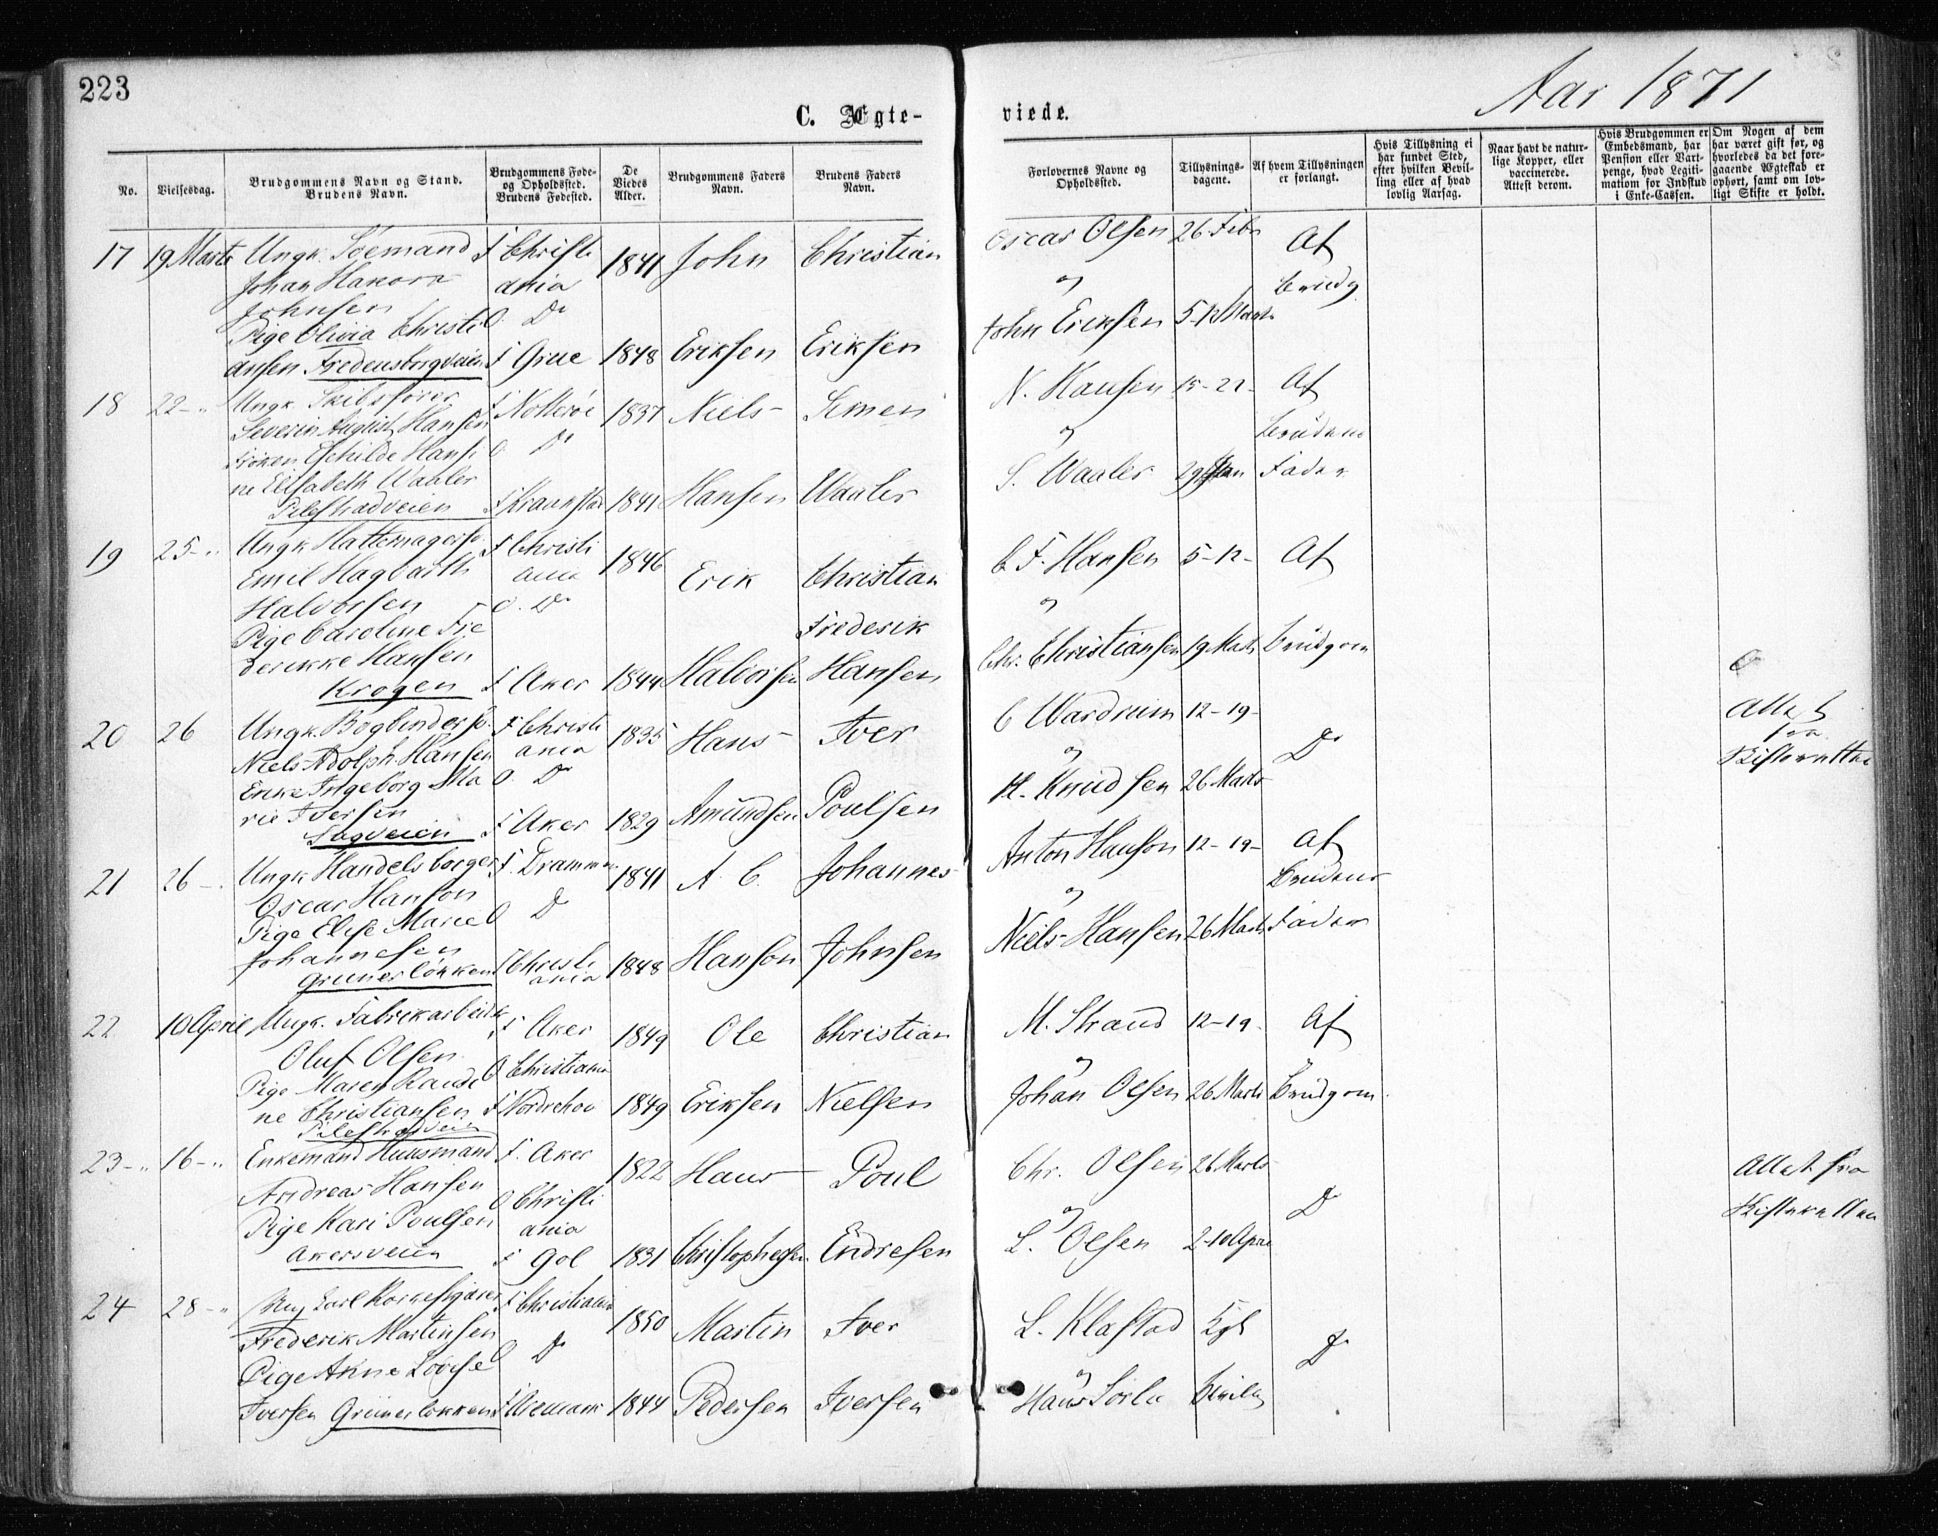 223
C. Ægte-
viede.
Aar 1871
No.
Vielsesdag.
Brudgommens Navn og Stand.
Brudens Navn.
Brudgommens Føde-
og Opholdssted.
Brudens Fødested.
De
Viedes
Alder.
Brudgommens Faders
Navn.
Brudens Faders
Navn.
Forlovernes Navne og
Opholdssted.
Tillysnings-
dagene.
Af hvem Tillysningen
er forlangt.
Hvis Tillysning ei
har fundet Sted,
efter hvilken Bevil-
ling eller af hvad
lovlig Aarsag.
Naar havt de natur-
lige Kopper, eller
vaccinerede.
Attest derom.
Hvis Brudgommen er
Embedsmand, har
Pension eller Vart-
penge, hvad Legiti-
mation for Indskud
i Enke-Cassen.
Om Nogen af dem
har været gift før, og
hvorledes da det fore-
gaaende Ægteskab er
ophørt, samt om lov-
ligt Skifte er holdt.
17 19 Marts Ungk. Söemand F Christi 1841 John Christian Oscar Olsen 26 Febr Af
Johan Hakon ania og Brudg
Johnsen
Pige Olivia Christi O. Do John Eriksen 5-12 Marts
ansen Fredensborgveien F Grue 1848 Eriksen Eriksen
18 22 - " Ungk. Skibsfører F Notterøe 1837 Niels Simen N. Hansen 15-22- Af
Severin August Hansen og Brudens
Frøken Hansi O Do
ne Elisabeth Waaler S. Waaler 29 Jan Fader
Pilestradveien F 1841 Hansen Waaler
19 25 - " Ungk Hattemagersv. F Christi 1846 Erik Christian C F. Hansen 5-12- Af
Emil Hagbarth ania og
Halvorsen O. Do
Pige Caroline Fre Frederik
derikke Hansen Chr. Christiansen 19 Marts Brudgom
Krogen F Aker 1844 Halvorsen Hansen
20 26 Ungk. Bogbindersv. F Christi 1835 Hans Iver C Wardrum 12-19- Do Attest
Niels Adolph Hansen ania og fra
Enke Ingeborg Ma O Do Skifteretten
rie Iversen H. Knudsen 26 Marts
Sagveien F Aker 1829 Amundsen Poulsen
21 26 - . Ungk Handelsborger F. Drammen 1841 A. C. Johannes Anton Hanson 12-19- Af
Oscar Hanson og Brudens
Pige Elise Marie O Do Niels Hansen 26 Marts Fader
Johannesen
Grünerløkken F Christi 1848 Hanson Johnsen
ania
22 10 April Ungk. Fabrikarbeider F Aker 1849 Ole Christian M. Strand 12-19. Af
Oluf Olsen O Christiania og
Pige Maren Randi
ne Christiansen F Nordrehov 1849 Eriksen Nielsen Johan Olsen 26 Marts Brudgom.
Pilestradveien
23 - " 16 - " Enkemand Huusmand F. Aker 1822 Hans Poul Chr. Olsen 26 Marts Attest fra
Andreas Hansen O Christi og Do Skifteretten
Pige Kari Poulsen ania
Akersveien F Gol 1831 Christophersen Endresen L. Olsen 2-10 April
24 28 - " Carl F Christiania 1850 Martin Iver L. Klastad Kgl
Frederik Martinsen O Do og Do
Pige Anne Lovise
Iversen Grünerløkken F 1844 Pedersen Iversen Hans Bevilg